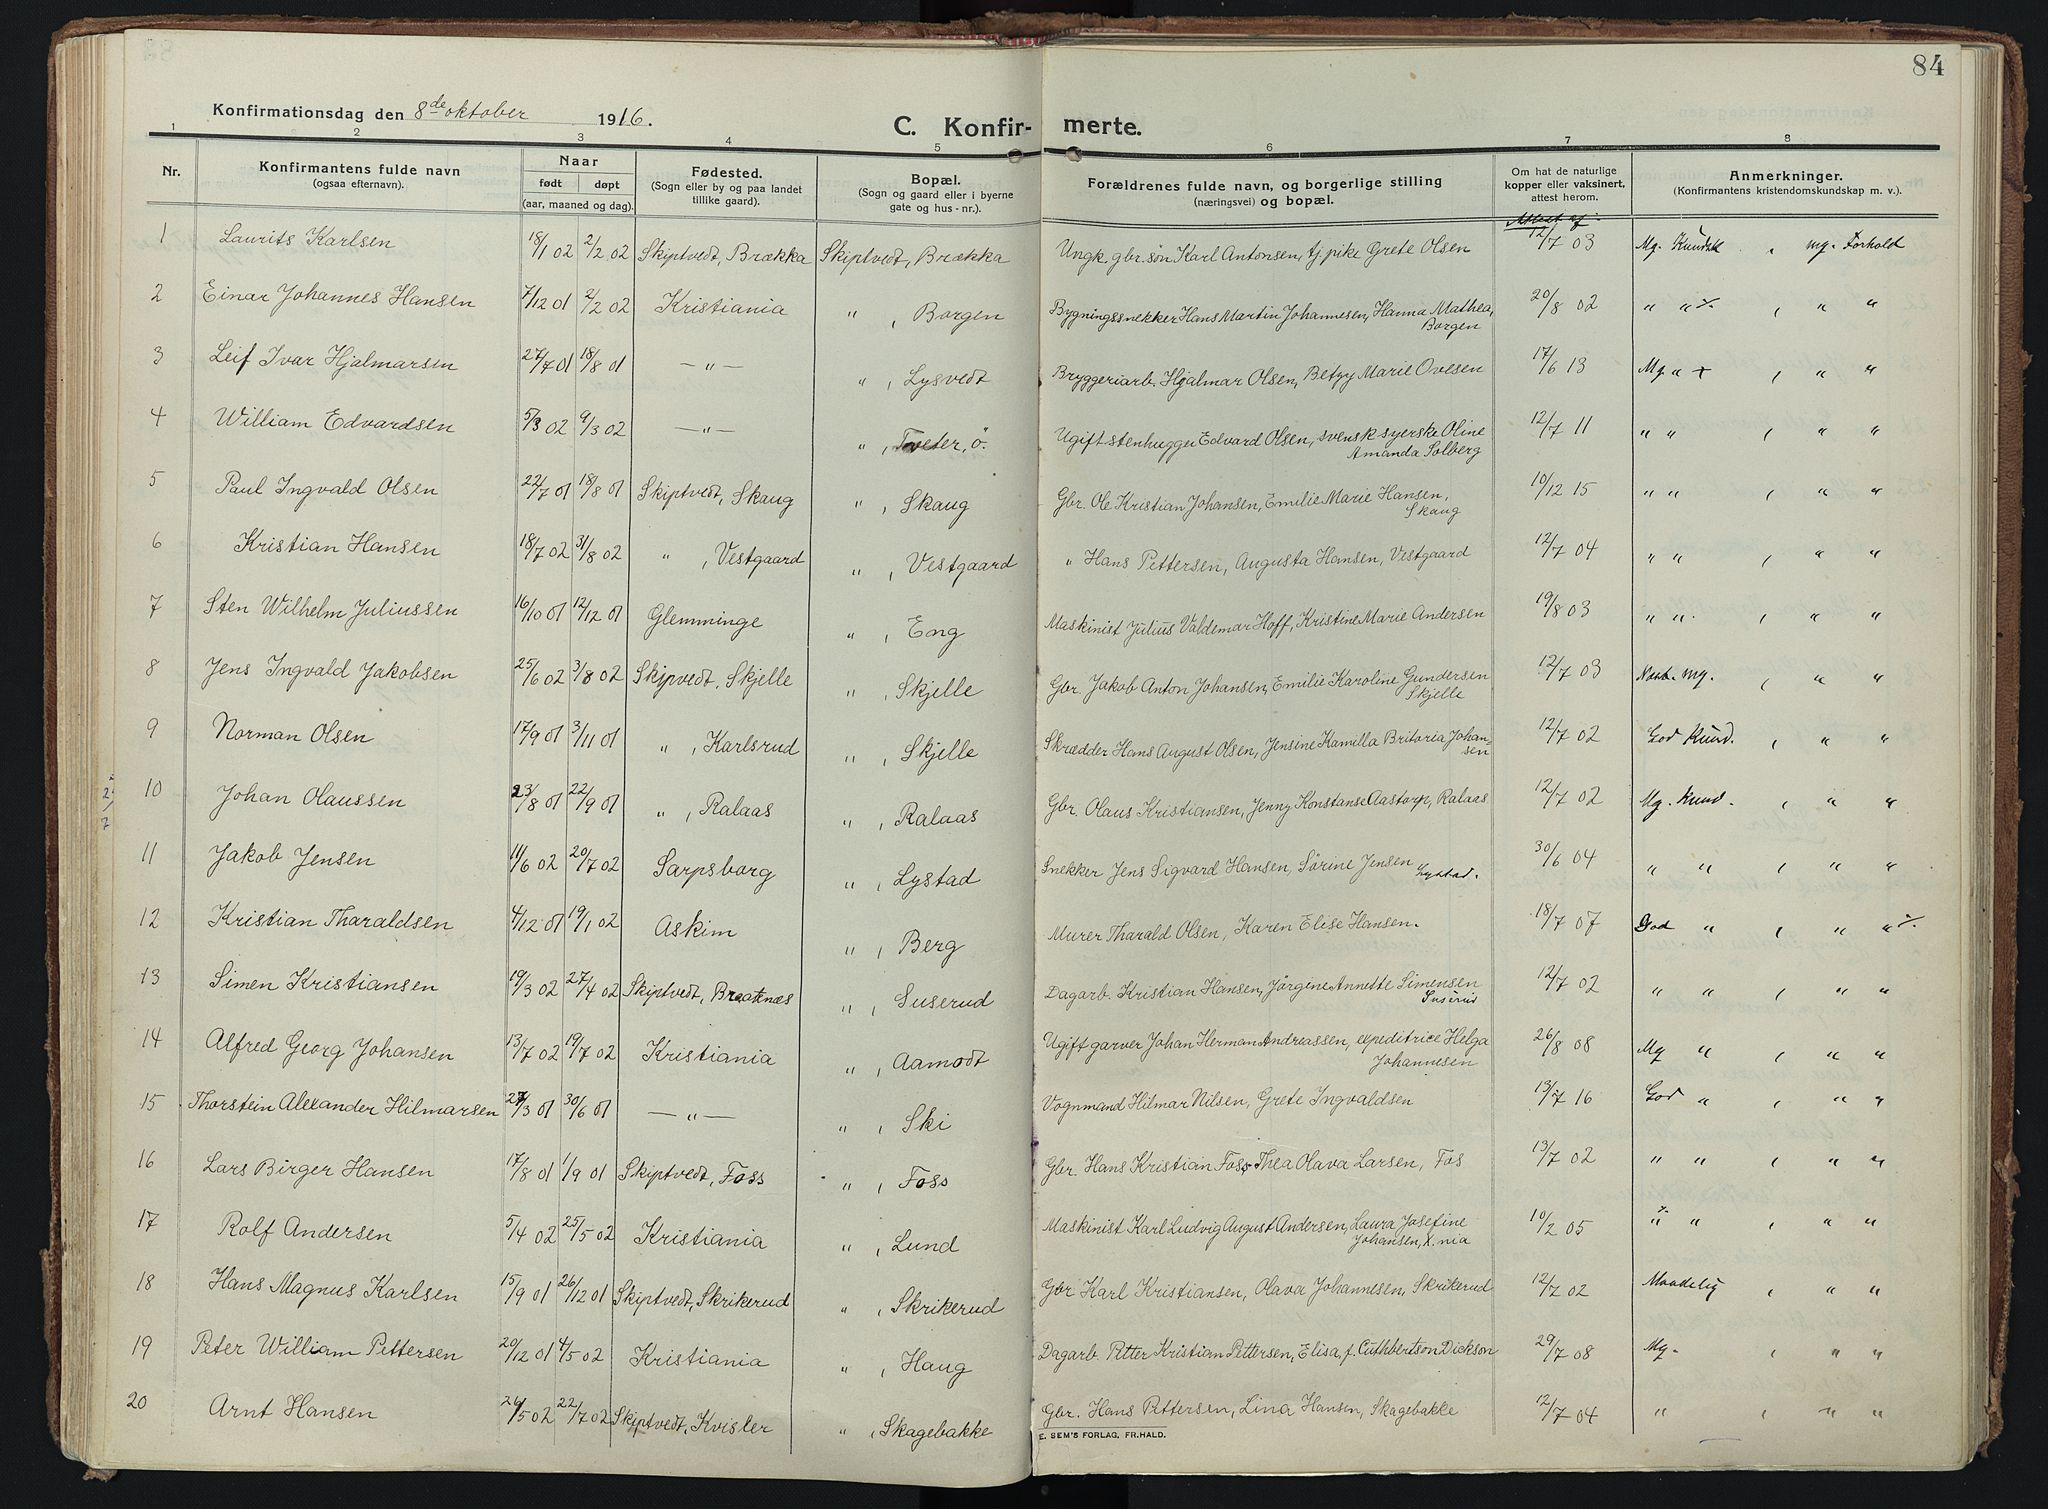 84
Konfirmationsdag den 8de oktober 1916.
C. Konfir- merte.
1 2 3 4 5 6 7 8
Nr. Konfirmantens fulde navn (ogsaa efternavn). Naar født døpt (aar, maaned og dag). Fødested. (Sogn eller by og paa landet tillike gaard). Bopæl. (Sogn og gaard eller i byerne gate og hus-nr.). Forældrenes fulde navn, og borgerlige stilling (næringsvei) og bopæl. Om hat de naturlige kopper eller vaksinert, attest herom. Anmerkninger. (Konfirmantens kristendomskundskap m. v.).
Attest af
1 Laurits Karlsen 18/1 02 2/2 02 Skiptvedt, Brækka Skiptvedt, Brækka Ungk. gbr. søn Karl Antonsen, tj. pike Grete Olsen 12/7 03 Mg. Kundsk " mg. Forhold
2 Einar Johannes Hansen 7/12 01 2/2 02 Kristiania " , Borgen Bygningssnekker Hans Martin Johannesen, Hanna Mathea, 20/8 02 " " ٪ , " "
Borgen
3 Leif Ivar Hjalmarsen 27/7 01 18/8 01 — " — " , Lysvedt Bryggeriarb. Hjalmar Olsen, Betzy Marie Ovesen 17/6 13 Mg. " + , " "
4 William Edvardsen 5/3 02 9/3 02 — " — " , Tveter, ö. Ugift stenhugger Edvard Olsen, svensk syerske Oline 12/7 11 " " , " "
Amanda Solberg
5 Paul Ingvald Olsen 22/7 01 18/8 01 Skiptvedt, Skaug " , Skaug Gbr. Ole Kristian Johansen, Emilie Marie Hansen, 10/12 15 " " , " "
Skaug
6 Kristian Hansen 18/7 02 31/8 02 " , Vestgaard " , Vestgaard " Hans Pettersen, Augusta Hansen, Vestgaard 12/7 04 " " , " "
7 Sten Wilhelm Juliussen 16/10 01 12/12 01 Glemminge " , Eng Maskinist Julius Valdemar Hoff, Kristine Marie Andersen 19/8 03 " " , " "
8 Jens Ingvald Jakobsen 25/6 02 3/8 02 Skipvedt, Skjelle " , Skjelle Gbr. Jakob Anton Johansen, Emilie Karoline Gundersen 12/7 03 mg. , " "
Skjelle
9 Norman Olsen 17/9 01 3/11 01 " , Karlsrud " , Skjelle Skrædder Hans August Olsen, Jensine Kamilla Britoria Johan- 12/7 02 God Kund. , " "
sen
10 Johan Olaussen 23/8 01 22/9 01 " , Ralaas " , Ralaas Gbr. Olaus Kristiansen, Jenny Konstanse Aastorp, Ralaas 12/7 02 Mg. Kund. , " "
11 Jakob Jensen 11/6 02 20/7 02 Sarpsborg " , Lystad Snekker Jens Sigvard Hansen, Sørine Jensen Lystad. 30/6 04 " " , " "
12 Kristian Tharaldsen 4/12 01 19/1 02 Askim " , Berg Murer Tharald Olsen, Karen Elise Hansen. 18/7 07 God " , " " ٪
13 Simen Kristiansen 19/3 02 27/4 02 Skiptvedt, Braatnæs " , Suserud Dagarb. Kristian Hansen, Jørgine Annette Simensen 12/7 02 " " , " "
Suserud
14 Alfred Georg Johansen 13/7 02 19/7 02 Kristiania " , Aamodt Ugift garver Johan Herman Andreassen, expeditrice Helga 26/8 08 Mg " , " "
Johannesen
15 Thorstein Alexander Hilmarsen 27/3 01 30/6 01 — " — " , Ski Vognmand Hilmar Nilsen, Grete Ingvaldsen 13/7 16 God " , " "
16 Lars Birger Hansen 17/8 01 1/9 01 Skiptvedt, Foss " , Foss Gbr. Hans Kristian Foss, Thea Olava Larsen, Fos 13/7 02 " " , " "
17 Rolf Andersen 5/4 02 25/5 02 Kristiania " , Lund Maskinist Karl Ludvig August Andersen, Laura Josefine 10/2 05 " " , " "
Johansen, K.nia
18 Hans Magnus Karlsen 15/9 01 26/12 01 Skiptvedt, Skrikerud " , Skrikerud Gbr Karl Kristiansen, Olava Johannesen, Skrikerud 12/7 02 Maadelig , " "
19 Peter William Pettersen 20/12 01 4/5 02 Kristiania " , Haug Dagarb. Petter Kristian Pettersen, Elisa, f. Cuthbertson Dickson 29/7 08 Mg. , " "
20 Arnt Hansen 26/5 02 22/7 02 Skiptvedt, Kvisler " , Skagebakke Gbr. Hans Pettersen, Lina Hansen, Skagebakke 12/7 04 " , " "
E. SEM'S FORLAG, FR.HALD.